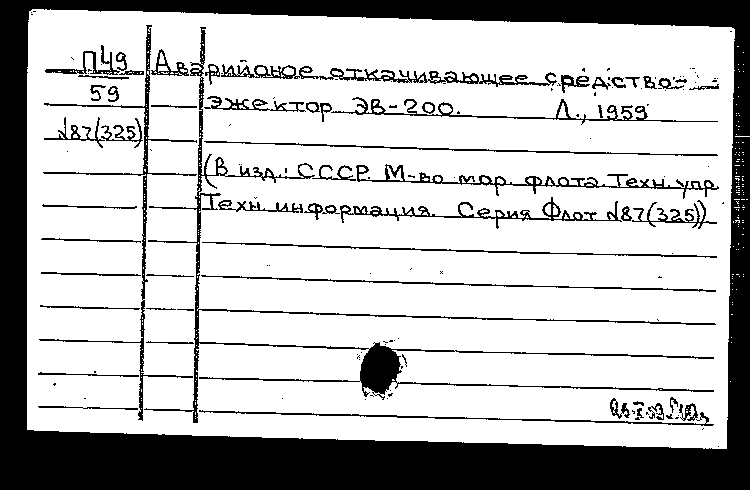 П49
59
№87(325)
Аварийоное откачивающее средство-
эжектор ЭВ-200. Л., 1959
(В изд.: СССР. М-во мор. флота. Техн. упр.
Техн. информация. Серия Флот №87(325))